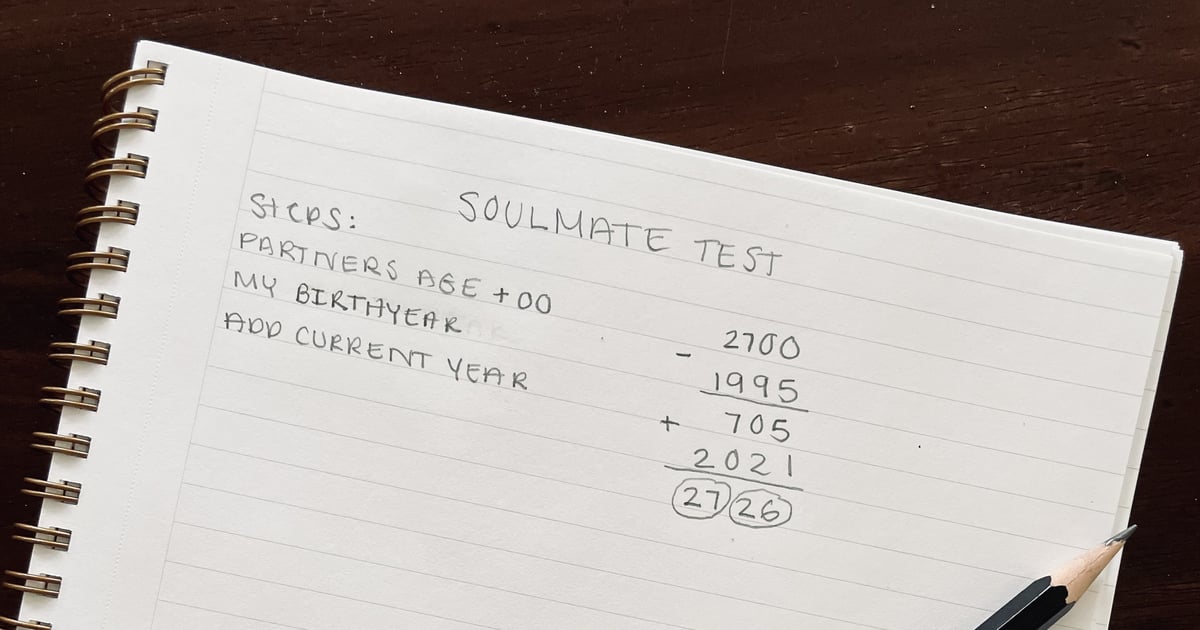 SOULMATE TEST
Steps:
PARTNERS AGE +00
MY BIRTHYEAR
ADD CURRENT YEAR
2700
- 1995
+ 705
2021
27 26